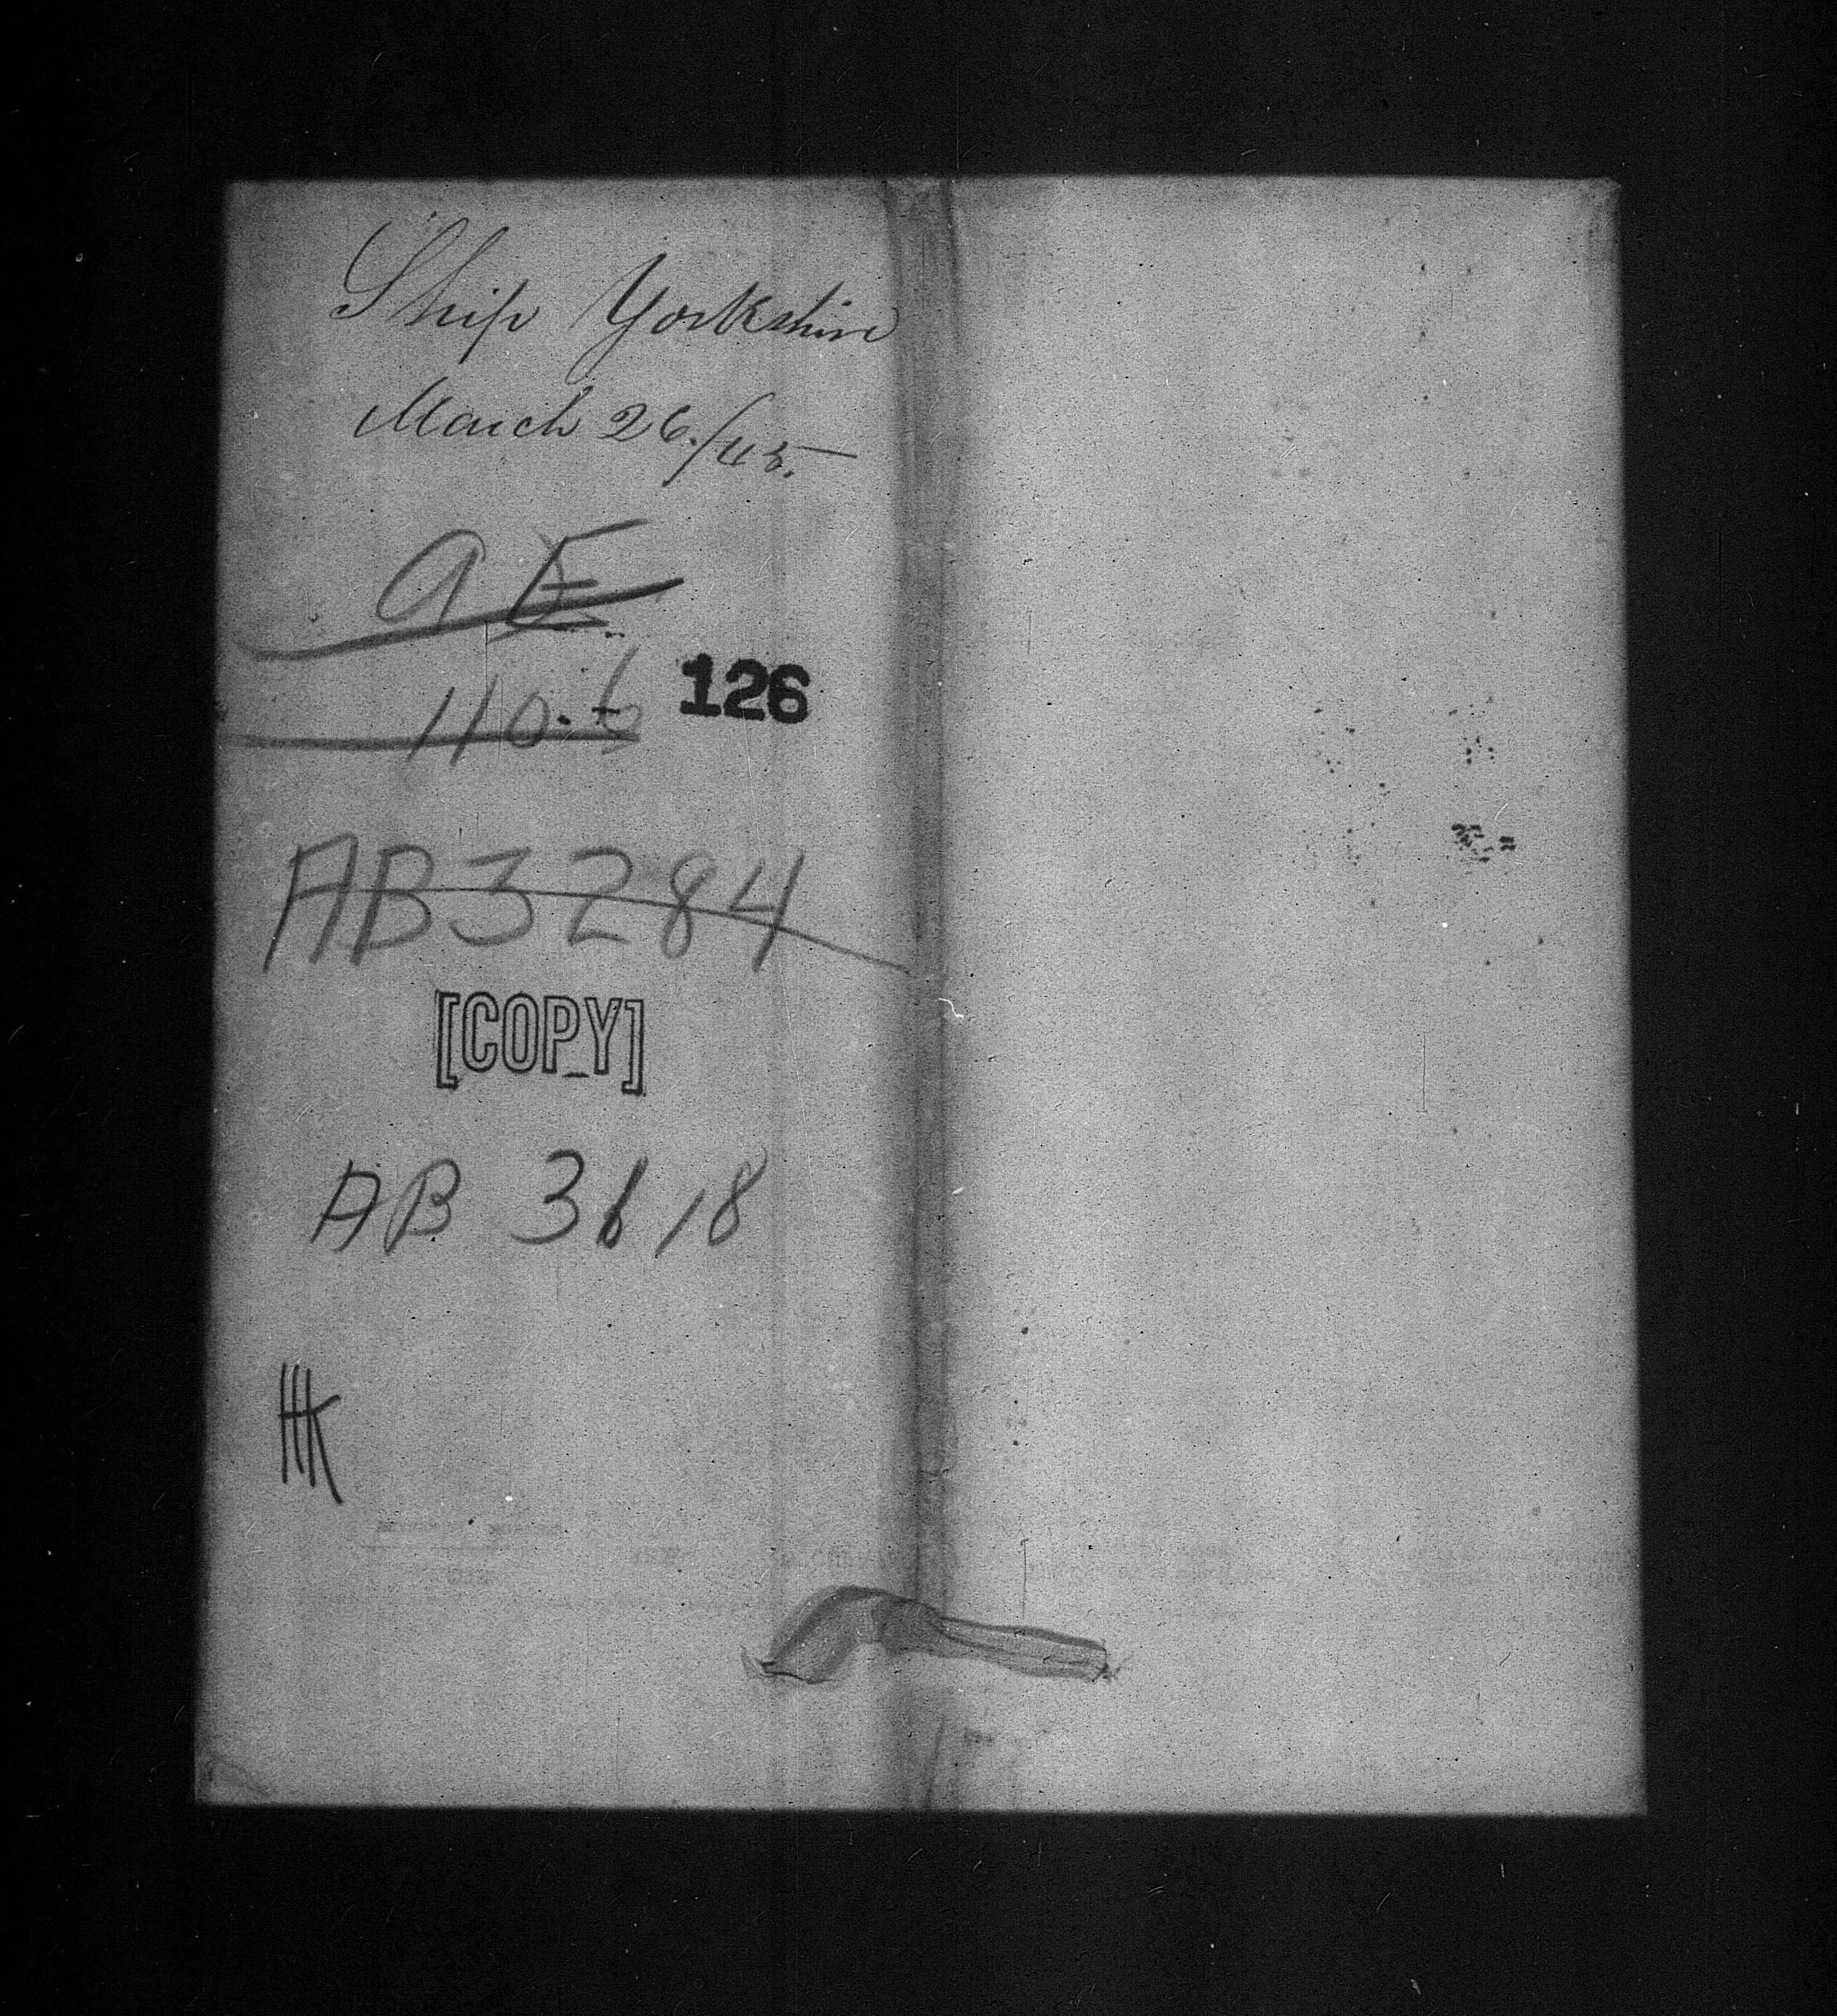 Ship Yorkshire
March 26./45.
a E
110.6 126
AB3284
[COPY]
AB 3618
HK